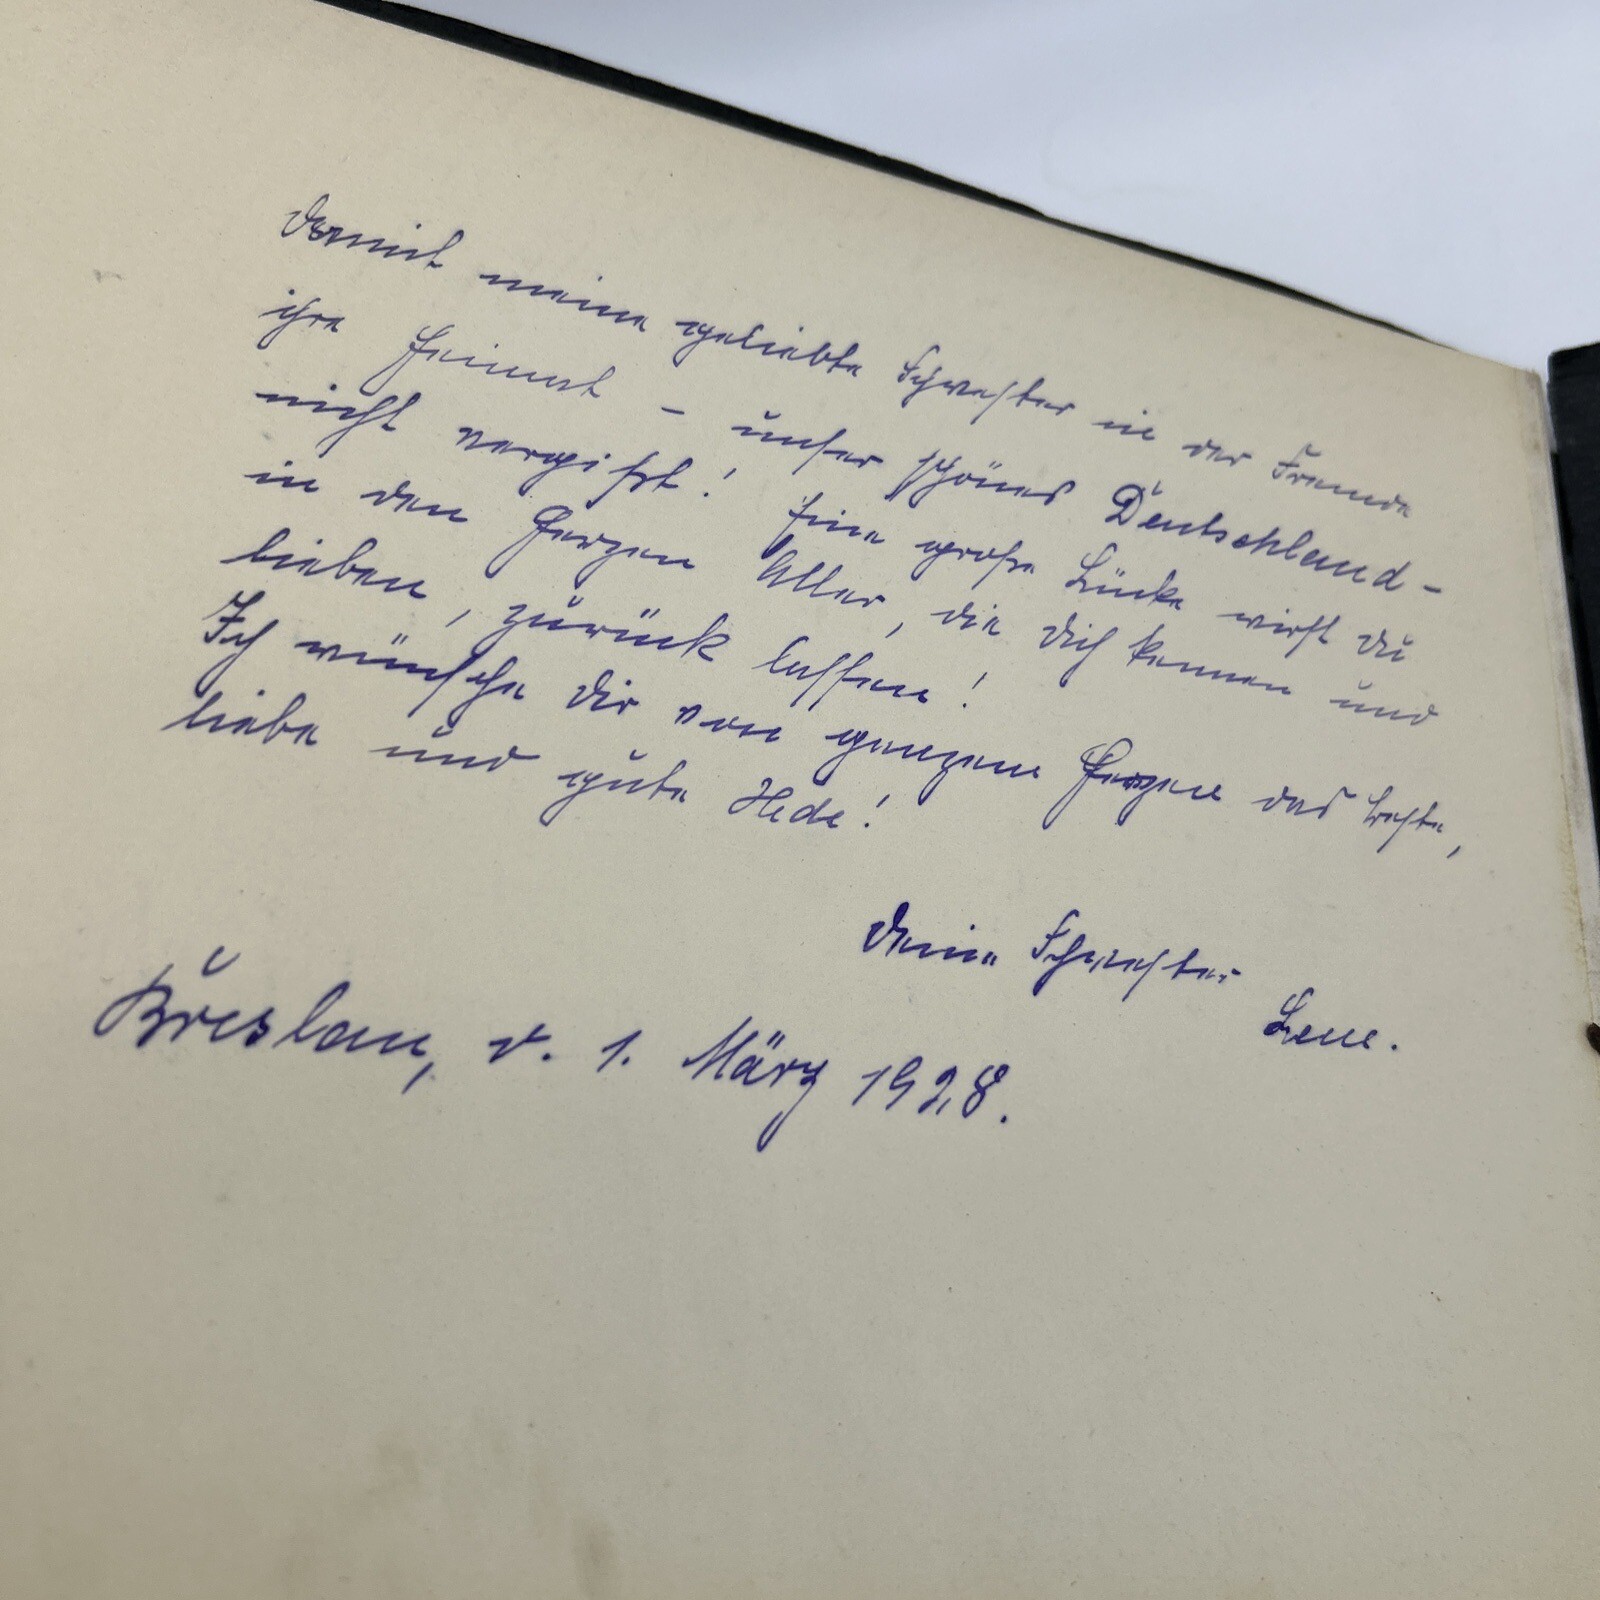 Damit meine geliebte Schwester in der Fremde
ihre Heimat – unser schönes Deutschland –
nicht vergißt! Eine große Lücke wirst Du
in den Herzen Aller, die Dich kennen und
lieben, zurück lassen!
Ich wünsche Dir von ganzem Herzen das beste,
liebe und gute Hede!
Deine Schwester
Lene.
Breslau, d. 1. März 1928.